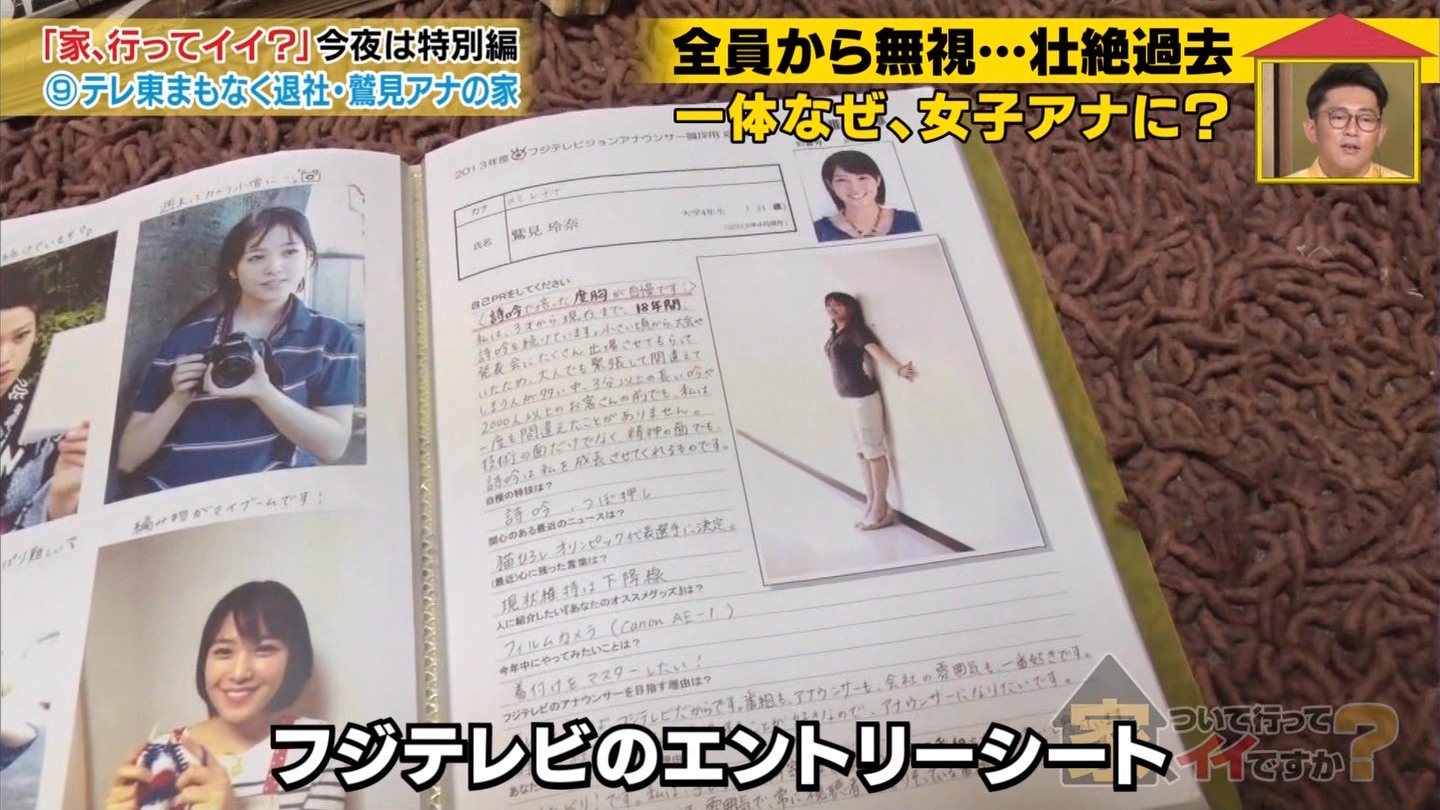 「家、行ってイイ?」今夜は特別編
⑨テレ東まもなく退社・鷲見アナの家
全員から無視…壮絶過去
一体なぜ、女子アナに?
週末はカメラ小僧に…。
編み物がマイブームです!
2013年度 フジテレビジョンアナウンサー職採用
カナ
スミ レイナ
氏名
鷲見 玲奈
大学4年生 (21歳)
(2013年4月現在)
自己PRをしてください
〈詩吟で培った度胸が自慢です!〉
私は、3才から現在まで、18年間、
詩吟を続けています。小さい頃から大会や
発表会にたくさん出場させてもらって
いたため、大人でも緊張して間違えて
しまう人が多い中、3分以上の長い吟や
2000人以上のお客さんの前でも、私は
一度も間違えたことがありません。
技術の面だけでなく、精神の面でも、
詩吟は私を成長させてくれるものです。
自慢の特技は?
詩吟・つぼ押し
関心のある最近のニュースは?
猫ひろし オリンピック代表選手に決定。
(最近)心に残った言葉は?
現状維持は下降線
人に紹介したい!あなたのオススメグッズ!は?
フィルムカメラ (Canon AE-1)
今年中にやってみたいことは?
着付けをマスターしたい!
フジテレビのアナウンサーを目指す理由は?
フジテレビだからです。番組も、アナウンサーも、会社の雰囲気も、一番好きです。
アナウンサーになりたいです。
フジテレビのエントリーシート
家、ついて行って
イイですか?